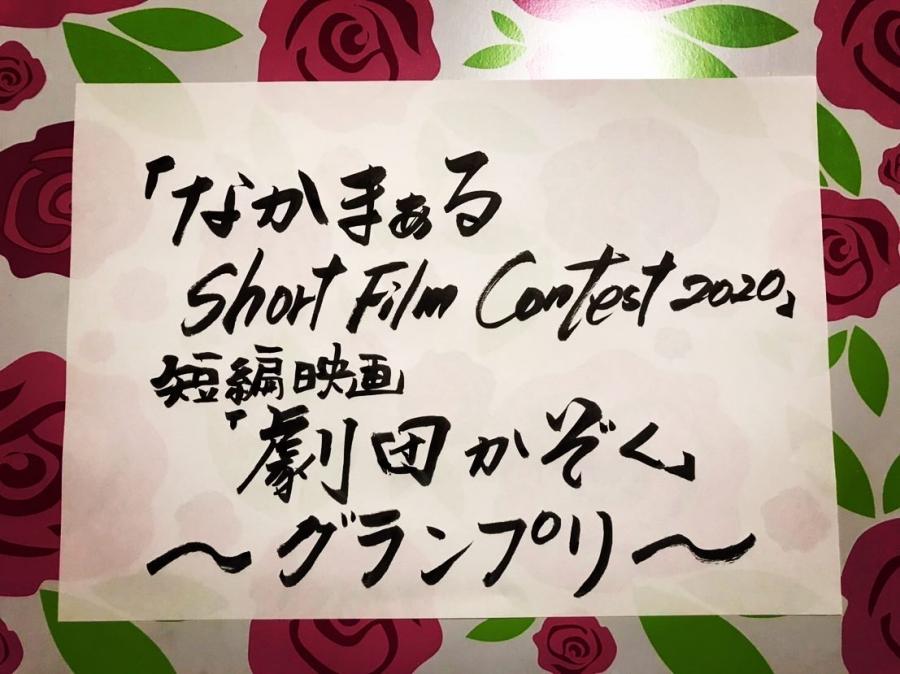 「なかまぁる
Short Film Contest 2020」
短編映画
「劇団かぞく」
～グランプリ～